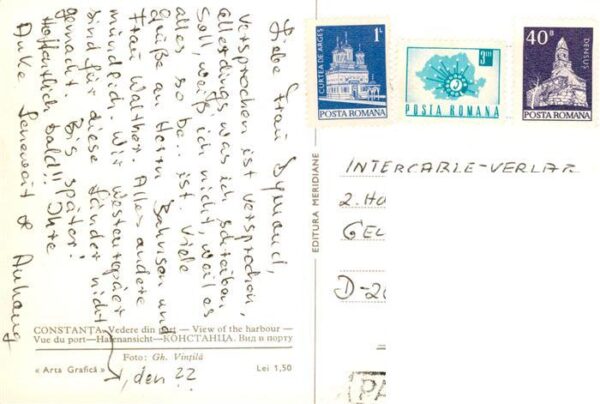 Liebe Frau
versprochen ist versprochen,
allerdings was ich schreiben
soll, weiß ich nicht, weil es
alles so be.. ist. Viele
Grüße an Herrn Bahnson und
Frau Walther. Alles andere
mündlich. Wir Westeuropäer
sind für diese Länder nicht
gemacht. Bis später!
Hoffentlich bald!!! Ihre
Anke & Anhang
CONSTANȚA—Vedere din port — View of the harbour —
Vue du port—Hafenansicht—КОНСТАНЦА. Вид в порту
Foto: Gh. Vințilă
« Arta Grafică »
, den ??
Lei 1,50
EDITURA MERIDIANE
CURTEA DE ARGEȘ
1L
POSTA ROMANA
3
POSTA ROMANA
40B
DENSUȘ
POSTA ROMANA
INTERCABLE-VERLAG
2. Ha
GEL
D-20
PA